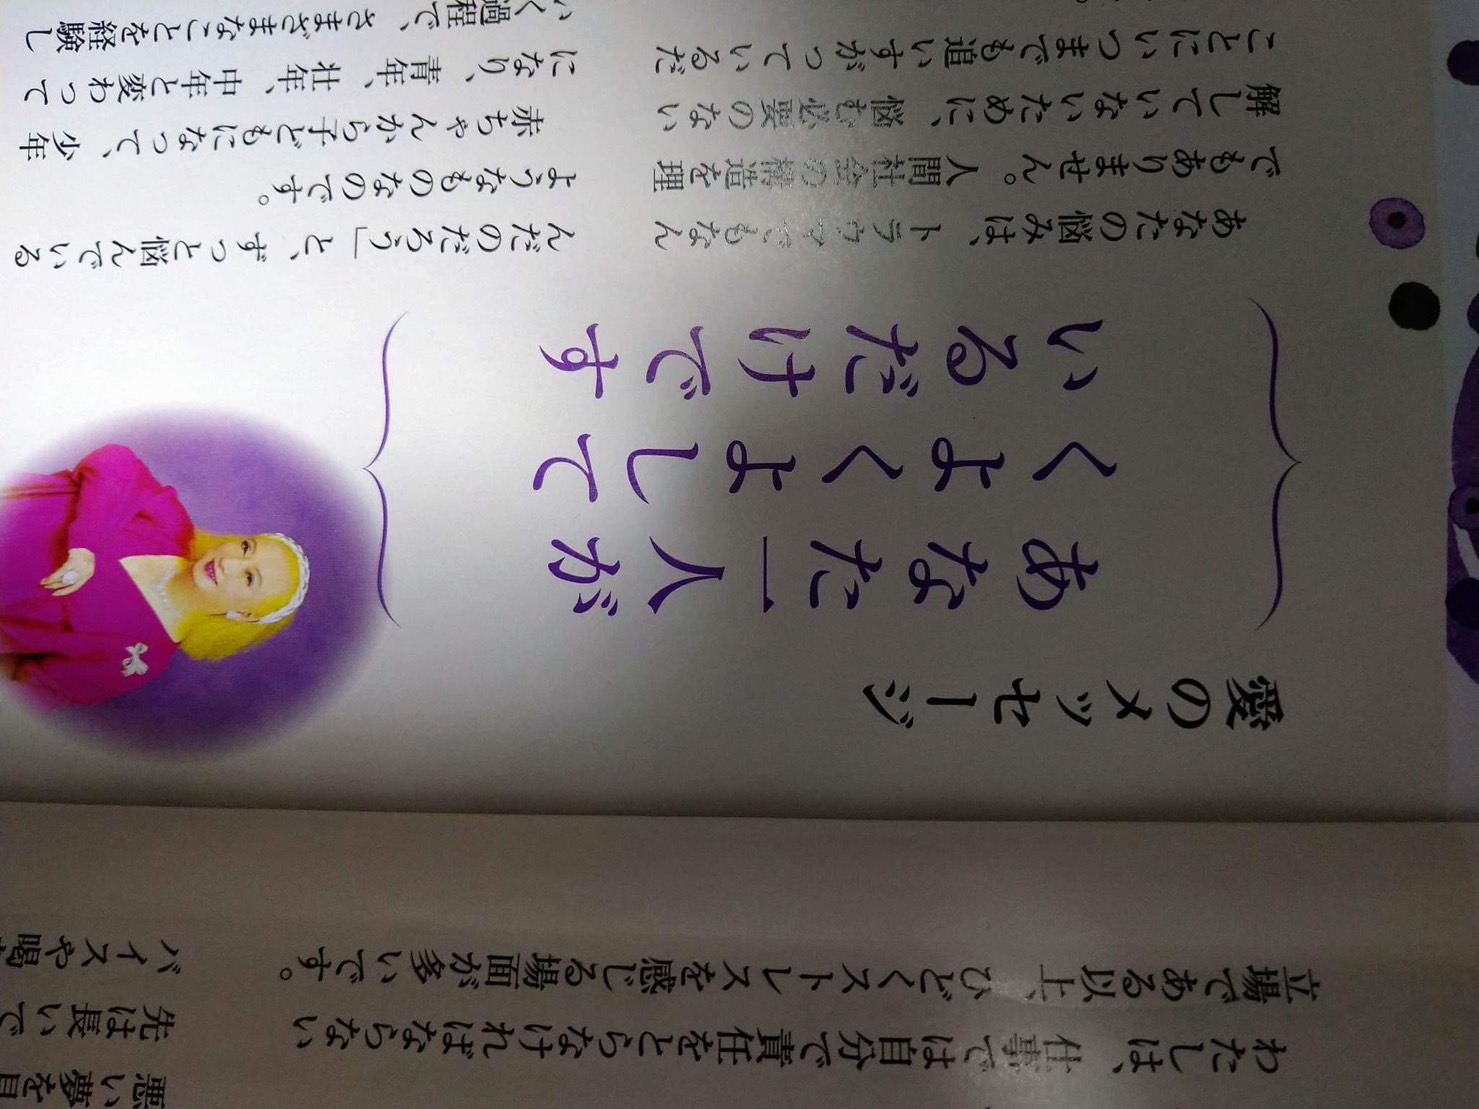 わたしは、仕事では自分で責任をとらなければならない
立場である以上、ひどくストレスを感じる場面が多いです。
悪い夢を見
先は長いで
バイスや喝
愛のメッセージ
あなた一人が
くよくよして
いるだけです
あなたの悩みは、トラウマでもなん
でもありません。人間社会の構造を理
解していないために、悩む必要のない
ことにいつまでも追いすがっているだ
んだのだろう」と、ずっと悩んでいる
ようなものなのです。
赤ちゃんから子どもになって、少年
になり、青年、壮年、中年と変わって
いく過程で、さまざまなことを経験し